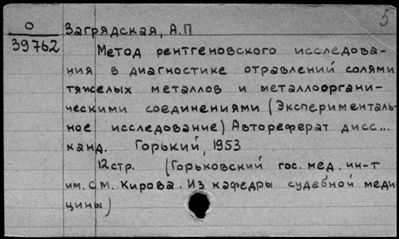 5
О Загрядская, А.П
39762
Метод рентгеновского исследова-
ния в диагностике отравлений солями
тяжелых металлов и металлоорганическими
ческими соединениями (Эксперименталь-
ное исследование) Автореферат дисс...
канд. Горький, 1953
12стр. (Горьковский гос. мед. ин-т
им. С М. Кирова. Из кафедры судебной меди
цины)